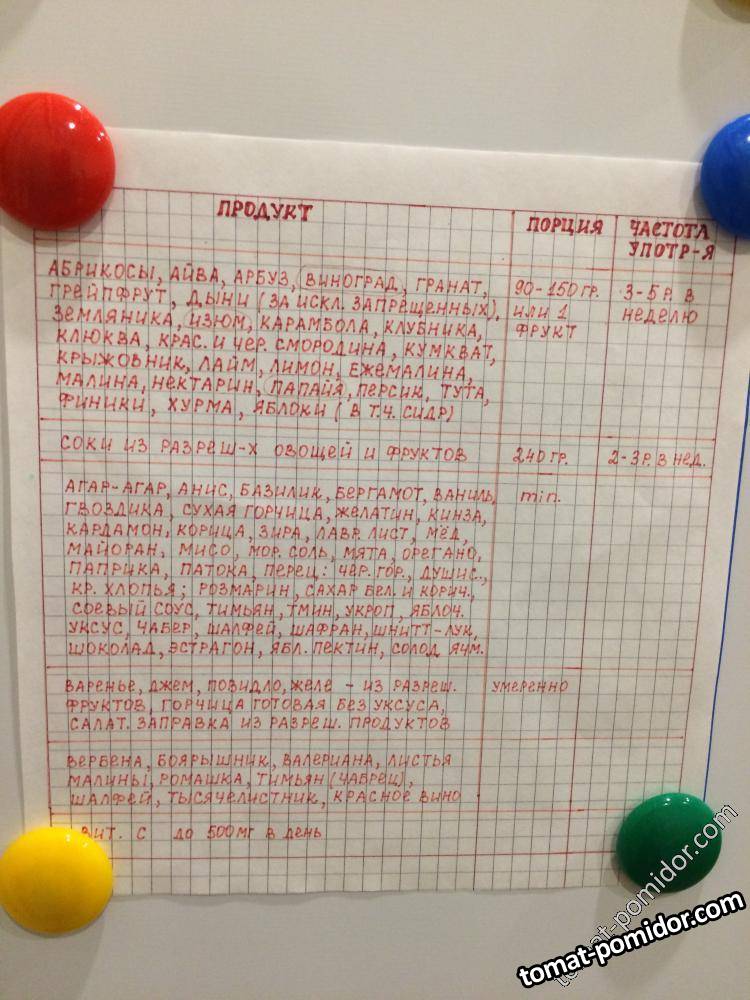 ПРОДУКТ
ПОРЦИЯ
ЧАСТОТА
УПОТР-Я
АБРИКОСЫ, АЙВА, АРБУЗ, ВИНОГРАД, ГРАНАТ,
ГРЕЙПФРУТ, ДЫНИ (ЗА ИСКЛ. ЗАПРЕЩЕННЫХ),
ЗЕМЛЯНИКА, ИЗЮМ, КАРАМБОЛА, КЛУБНИКА,
КЛЮКВА, КРАС. И ЧЕР. СМОРОДИНА, КУМКВАТ,
КРЫЖОВНИК, ЛАЙМ, ЛИМОН, ЕЖЕМАЛИНА,
МАЛИНА, НЕКТАРИН, ПАПАЙЯ, ПЕРСИК, ТУТА,
ФИНИКИ, ХУРМА, ЯБЛОКИ (В Т.Ч. СИДР)
90-150 ГР.
ИЛИ 1
ФРУКТ
3-5 Р. В
НЕДЕЛЮ
СОКИ ИЗ РАЗРЕШ-Х ОВОЩЕЙ И ФРУКТОВ
240 ГР.
2-3 Р. В НЕД.
АГАР-АГАР, АНИС, БАЗИЛИК, БЕРГАМОТ, ВАНИЛЬ,
ГВОЗДИКА, СУХАЯ ГОРЧИЦА, ЖЕЛАТИН, КИНЗА,
КАРДАМОН, КОРИЦА, ЗИРА, ЛАВР. ЛИСТ, МЁД,
МАЙОРАН, МИСО, МОР. СОЛЬ, МЯТА, ОРЕГАНО,
ПАПРИКА, ПАТОКА, ПЕРЕЦ: ЧЕР. ГОР., ДУШИС.,
КР. ХЛОПЬЯ; РОЗМАРИН, САХАР БЕЛ. И КОРИЧ.,
СОЕВЫЙ СОУС, ТИМЬЯН, ТМИН, УКРОП, ЯБЛОЧ.
УКСУС, ЧАБЕР, ШАЛФЕЙ, ШАФРАН, ШНИТТ-ЛУК,
ШОКОЛАД, ЭСТРАГОН, ЯБЛ. ПЕКТИН, СОЛОД ЯЧМ.
min.
ВАРЕНЬЕ, ДЖЕМ, ПОВИДЛО, ЖЕЛЕ - ИЗ РАЗРЕШ.
ФРУКТОВ, ГОРЧИЦА ГОТОВАЯ БЕЗ УКСУСА,
САЛАТ. ЗАПРАВКА ИЗ РАЗРЕШ. ПРОДУКТОВ
УМЕРЕННО
ВЕРБЕНА, БОЯРЫШНИК, ВАЛЕРИАНА, ЛИСТЬЯ
МАЛИНЫ, РОМАШКА, ТИМЬЯН (ЧАБРЕЦ),
ШАЛФЕЙ, ТЫСЯЧЕЛИСТНИК, КРАСНОЕ ВИНО
ВИТ. С ДО 500МГ В ДЕНЬ
tomat-pomidor.com
tomat-pomidor.com